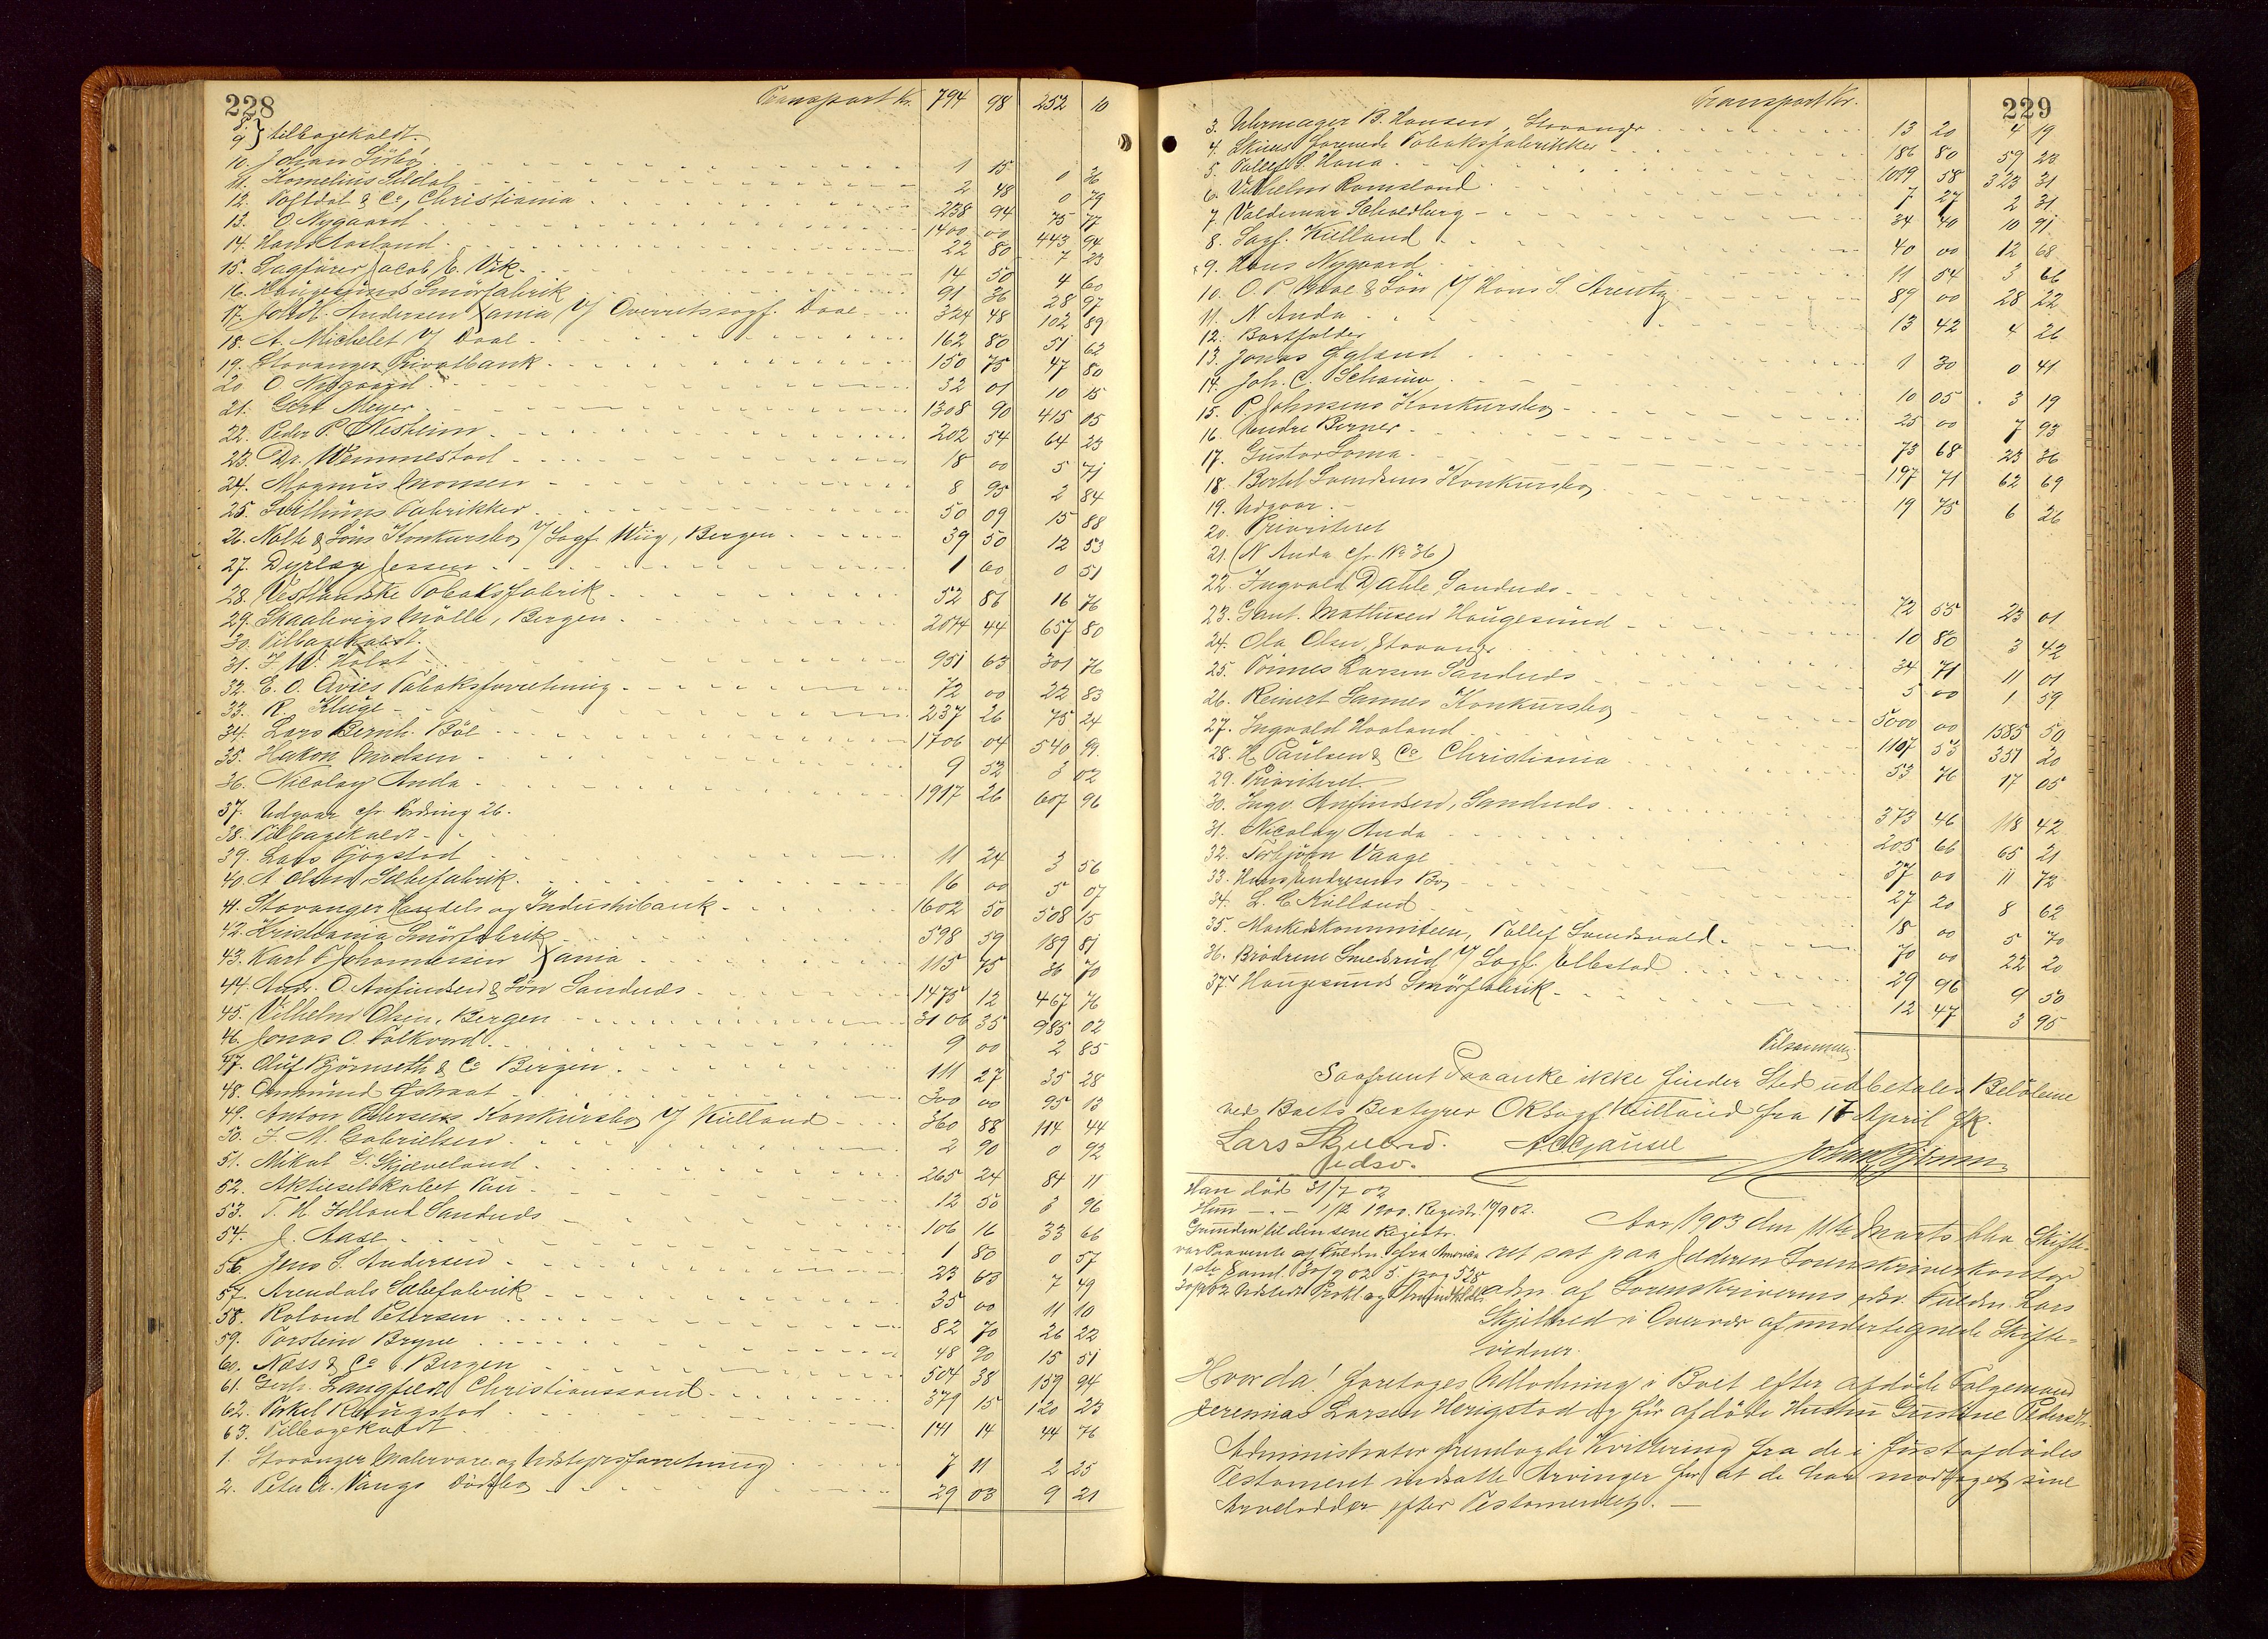 228
Transport Kr. 794 98 252 10
8. 9. } tilbagekaldt
10. Johan Sirbø 1 15 0 36
11. Kornelius Sildal 2 48 0 79
12. Toftdal & Co, Christiania 238 94 75 77
13. O Nygaard 1400 00 443 94
14. Hans Aasland 22 80 7 23
15. Sagfører Jacob E. Vik 14 50 4 60
16. Haugesunds Smörfabrik 91 36 28 97
17. Andersen Xania V/ Overretssagf. Daae 324 48 102 89
18. A. Michelet V/ Daae 162 80 51 62
19. Stavanger Privatbank 150 75 47 80
20 O. Nygaard 32 01 10 15
21. Gert Meyer 1308 90 415 05
22. Peder P. Nesheim 202 54 64 23
23. Dr. Wennestad 18 00 5 71
24. Magnus Monsen 8 95 2 84
25. Fabrikker 50 09 15 88
26. Nolte & Söns Konkursbo V/ Sagf. Wiig, Bergen 39 50 12 53
27. Dyrlæg Jessen 1 60 0 51
28. Vestlandske Tobaksfabrik 52 86 16 76
29. Skaalevigs Mölle, Bergen 2074 44 657 80
30. Tilbagekaldt.
31. J. W. Holst 951 63 301 76
32. E. O. Avies Tobaksforretning 72 00 22 83
33. R. Kluge 237 26 75 24
34. Lars Bernh. Böe 1706 04 540 99
35. Hakon Madsen 9 52 3 02
36. Nicolay Anda 1917 26 607 96
37. Udgaar cfr. Fordring 26.
38. Tilbagekaldt
39. Lars Tjøgstad 11 24 3 56
40. A Olsens Sæbefabrik 16 00 5 07
41. Stavanger Handels og Industribank 1602 50 508 15
42. Kristiania Smörfabrik 598 59 189 81
43. Karl Johannesen Xania 115 75 36 70
44. Andr. O. Anfindsen & Sön Sandnæs 1475 12 467 76
45. Vilhelm Olsen, Bergen 3106 35 985 02
46. Jonas O. Folkvord 9 00 2 85
47. Oluf Björnseth & Co Bergen 111 27 35 28
48. Omund Østraat 300 00 95 13
49. Anton Petersens Konkursbo V/ Kielland 360 88 114 44
50. J. M. Gabrielsen 2 90 0 92
51. Mikal G. Skjæveland 265 24 84 11
52. Aktieselskabet Pau 12 50 3 96
53. T. H. Idland Sandnæs 106 16 33 66
54. J. Aase 1 80 0 57
56. Jens S. Andersen 23 63 7 49
57. Arendals Sæbefabrik 35 00 11 10
58. Roland Petersen 82 70 26 22
59. Torstein Bryne 48 90 15 51
60. Næss & Co Bergen 504 38 159 94
61. Gerh. Langfeldt Christianssand 379 15 120 23
62. Torkel Haugstad 141 14 44 76
63. Tilbagekaldt
1. Stavanger Malervare og Udstyrsforretning 7 11 2 25
2. Peter A. Vangs Dödsbo 29 03 9 21
229
Transport Kr.
3. Uhrmager B. Hansen, Stavanger 13 20 4 19
4. Skiens forenede Tobaksfabrikker 186 80 59 23
5. Tollef S. Hana 1019 58 323 31
6. Vilhelm Ramsland 7 27 2 31
7. Valdemar Schoedburg 34 40 10 91
8. Sagf. Kielland 40 00 12 68
9. Hans Nygaard 11 54 3 66
10. O. P. Moe & Sön V/ Hans S. Arentz 89 00 28 22
11. N Anda 13 42 4 26
12. Bortfalder
13. Jonas Øgland 1 30 0 41
14. Joh. C. Schanio 10 05 3 19
15. P. Johnsens Konkursbo 25 00 7 93
16. Andre Berner 73 68 23 36
17. Gustav Soma 197 71 62 69
18. Bertel Svendsens Konkursbo 19 75 6 26
19. Udgaar.
20. Prioriteret
21. (N Anda cfr. No 36)
22. Ingvald Dahle, Sandnæs 72 55 23 01
23. Gant. Mathisen Haugesund 10 80 3 42
24. Ola Olsen Stavanger 34 71 11 01
25. Tönnes Larsen Sandnæs 5 00 1 59
26. Reinert Sannes Konkursbo 5000 00 1585 50
27. Ingvald Haaland 1107 53 351 20
28. H Paulsen & Co Christiania 53 76 17 05
29. Prioriteret
30. Ingv. Anfindsen, Sandnæs 373 46 118 42
31. Nicolay Anda 205 66 65 21
32. Torbjörn Vaage 37 00 11 72
33. Hans Andresens Bo 27 20 8 62
34. L. C Kielland 18 00 5 70
35. Markedskommiteen, Tollef Sandsvold 70 00 22 20
36. Brödrene Smedsrud V/ Sagf. Ellestad 29 96 9 50
37. Haugesunds Smörfabrik 12 47 3 95
Tilsammen
Saafremt Paaanke ikke finder Sted udbetales Belöbene
ved Boets Bestyrer ORSagf Kielland fra 17 April fk.
Lars Skjelbred. A C Gausel
edsv.
Han död 31/7 02
Hun — 1/12 1900. Registr. 19/9 02.
Grunden til den sene Registr.
var Paavente af Fuldm. fra Amerika
1ste Saml. 30/9 02 5 pag 528
30/9 02 Udstedt Prokl. og
Aar 1903 den 11te Marts blev Skifte-
ret sat paa Jæderen Sorenskriverkontor
adm. af Sorenskriverens edsv. Fuldm. Lars
Skjelbred i Overvær af undertegnede Skifte-
vidner.
Hvorda! foretoges Udlodning i Boet efter afdöde Folgemand
Jeremias Larsen Herigstad og för afdöde Hustru Gustine Pedersdtr.
Administrator fremlagde Kvittering fra de i förstafdödes
Testament indsatte Arvinger for at de har modtaget sine
Arvelodder efter Testamentet. —